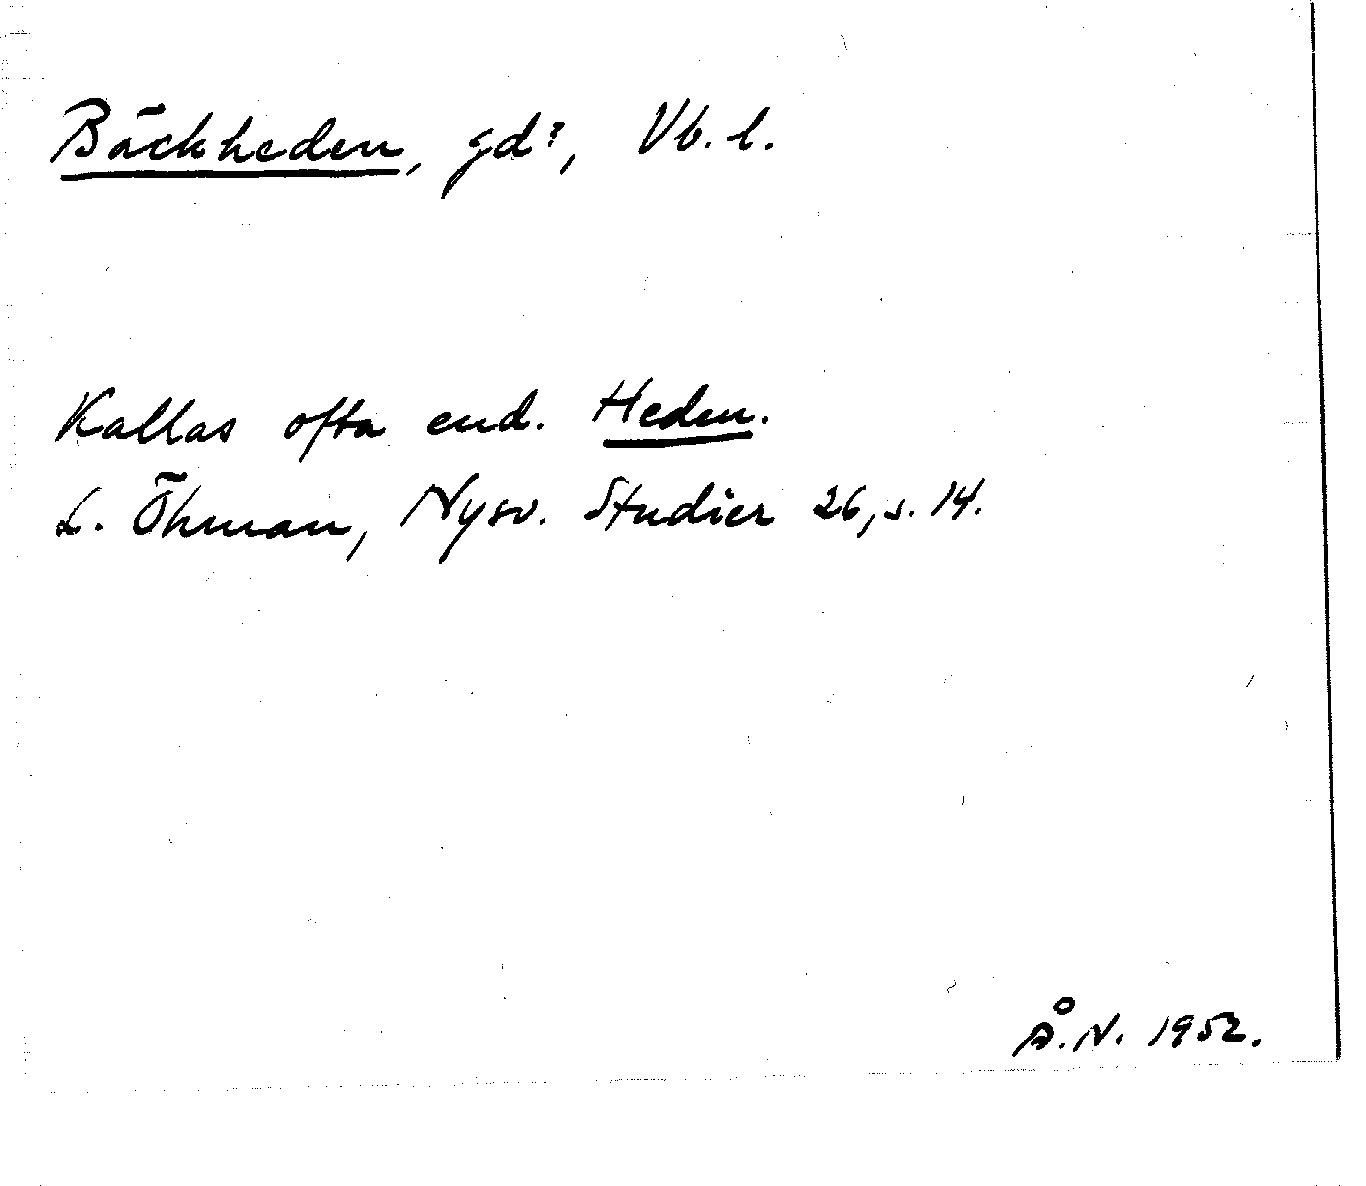 Bäckheden, gd?, Vb. l.
Kallas ofta end. Heden.
L. Öhman, Nysv. Studier 26, s. 14.
Å. N. 1952.